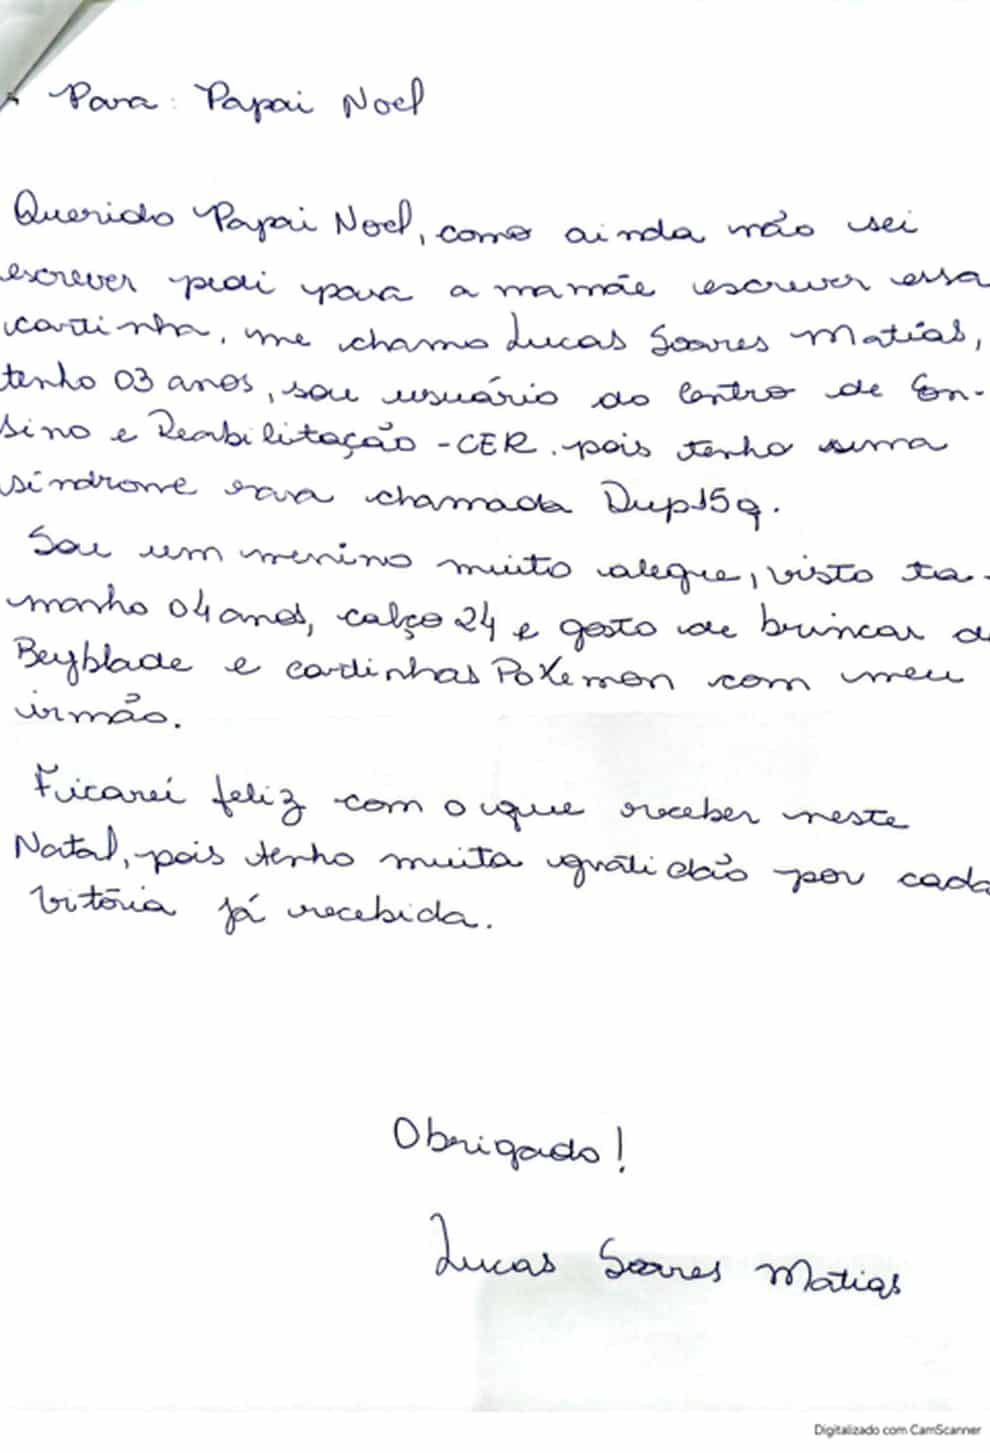 Para: Papai Noel
Querido Papai Noel, como ainda não sei
escrever pedi para a mamãe escrever essa
cartinha, me chamo Lucas Soares Matias,
tenho 03 anos, sou usuário do Centro de En-
sino e Reabilitação - CER. pois tenho uma
síndrome rara chamada Dup15q.
Sou um menino muito alegre, visto ta-
manho 04 anos, calço 24 e gosto de brincar d
Beyblade e cardinhas PoKemon com meu
irmão.
Ficarei feliz com o que receber neste
Natal, pois tenho muita gratidão por cada
Vitória já recebida.
Obrigado!
Lucas Soares Matias
Digitalizado com CamScanner